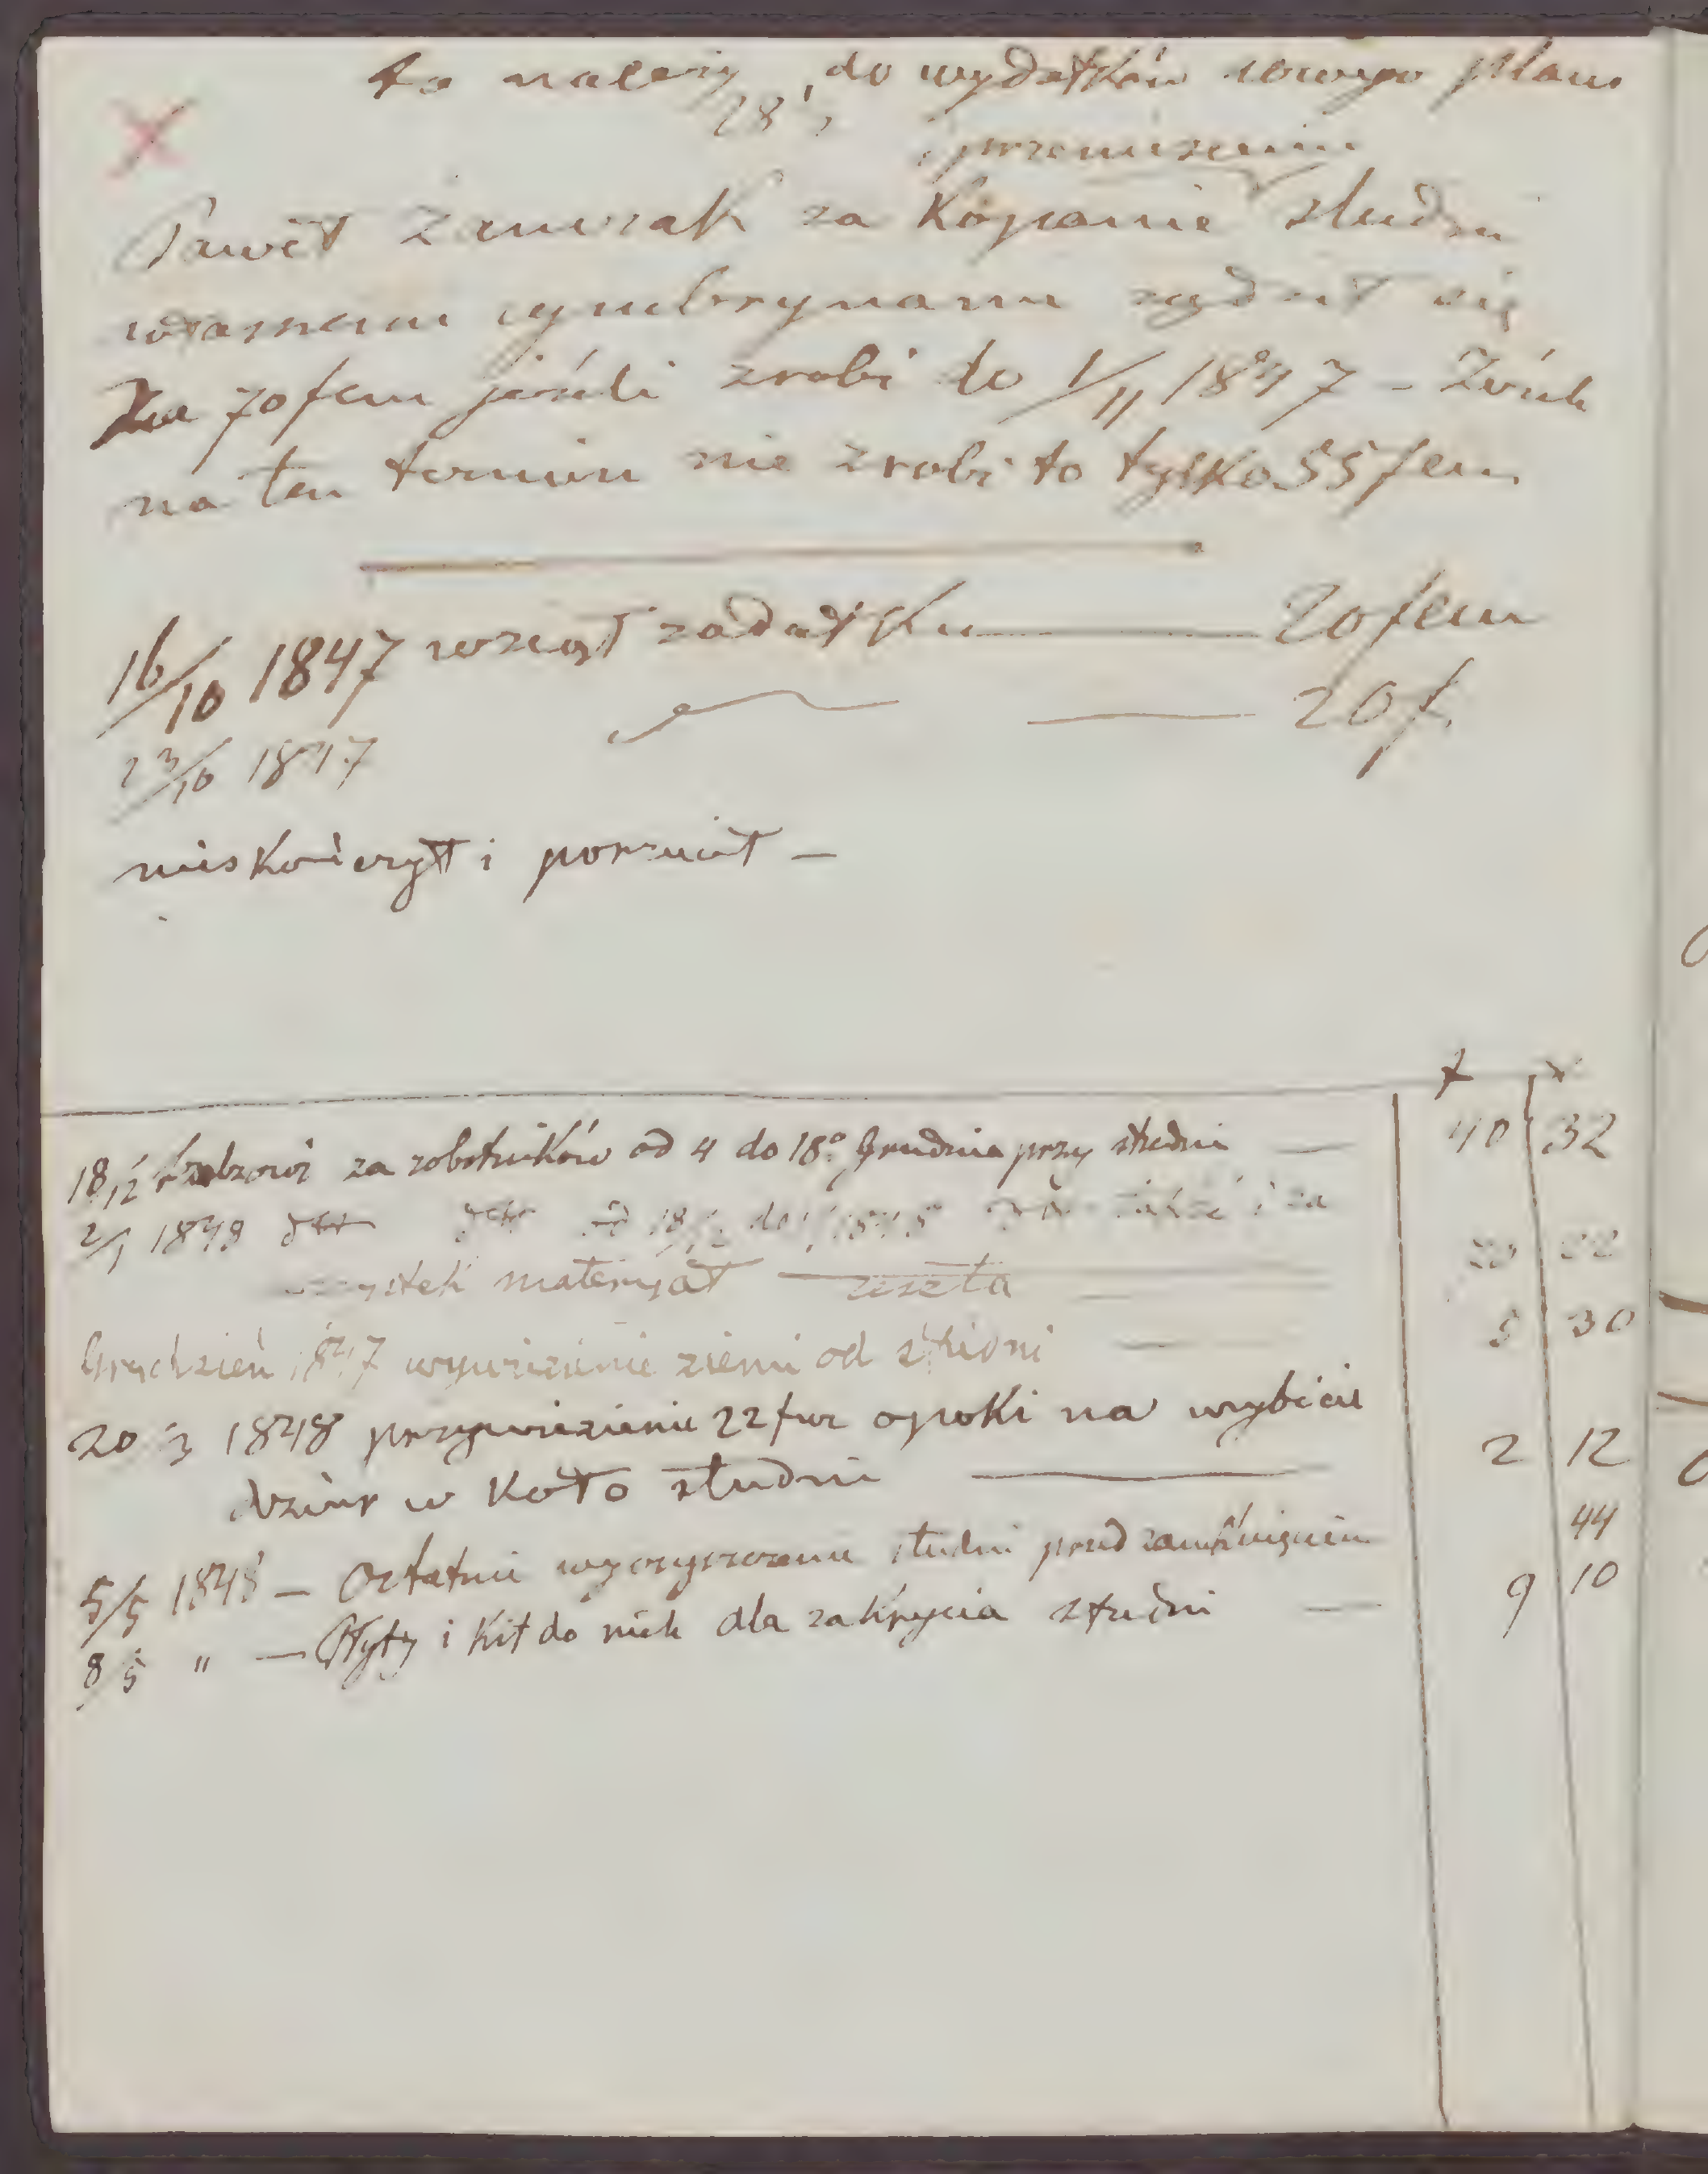 to należy do wydatków nowego planu
28
i przeniesienia
Paweł za Kopanie studni
własnemi cymbrynami zgodził się
Za 70 fem jeżeli zrobi do 1/11 1847 –
na ten termin nie zrobi to tylko 55 fem
16/10 1847 wziął zadatku 20 fem
23/10 1847 20 f.
nieskończył i porzucił –
f x
18/12 za robotników od 4 do 18º Grudnia przy studni — 40 32
2/1 1848 dtto dtto od 18/12 do także i za
materyał reszta —
Grudzień 1847 wywiezienie ziemi od studni — 5 30
20 3 1848 przywiezienie 22 fur opoki na wybicie
dziur w Koło studni — 2 12
5/5 1848 – Ostatnie wyczyszczenie studni przed zamknięciem 44
8/5 " — Płyty i Kit do nich dla zakrycia studni — 9 10